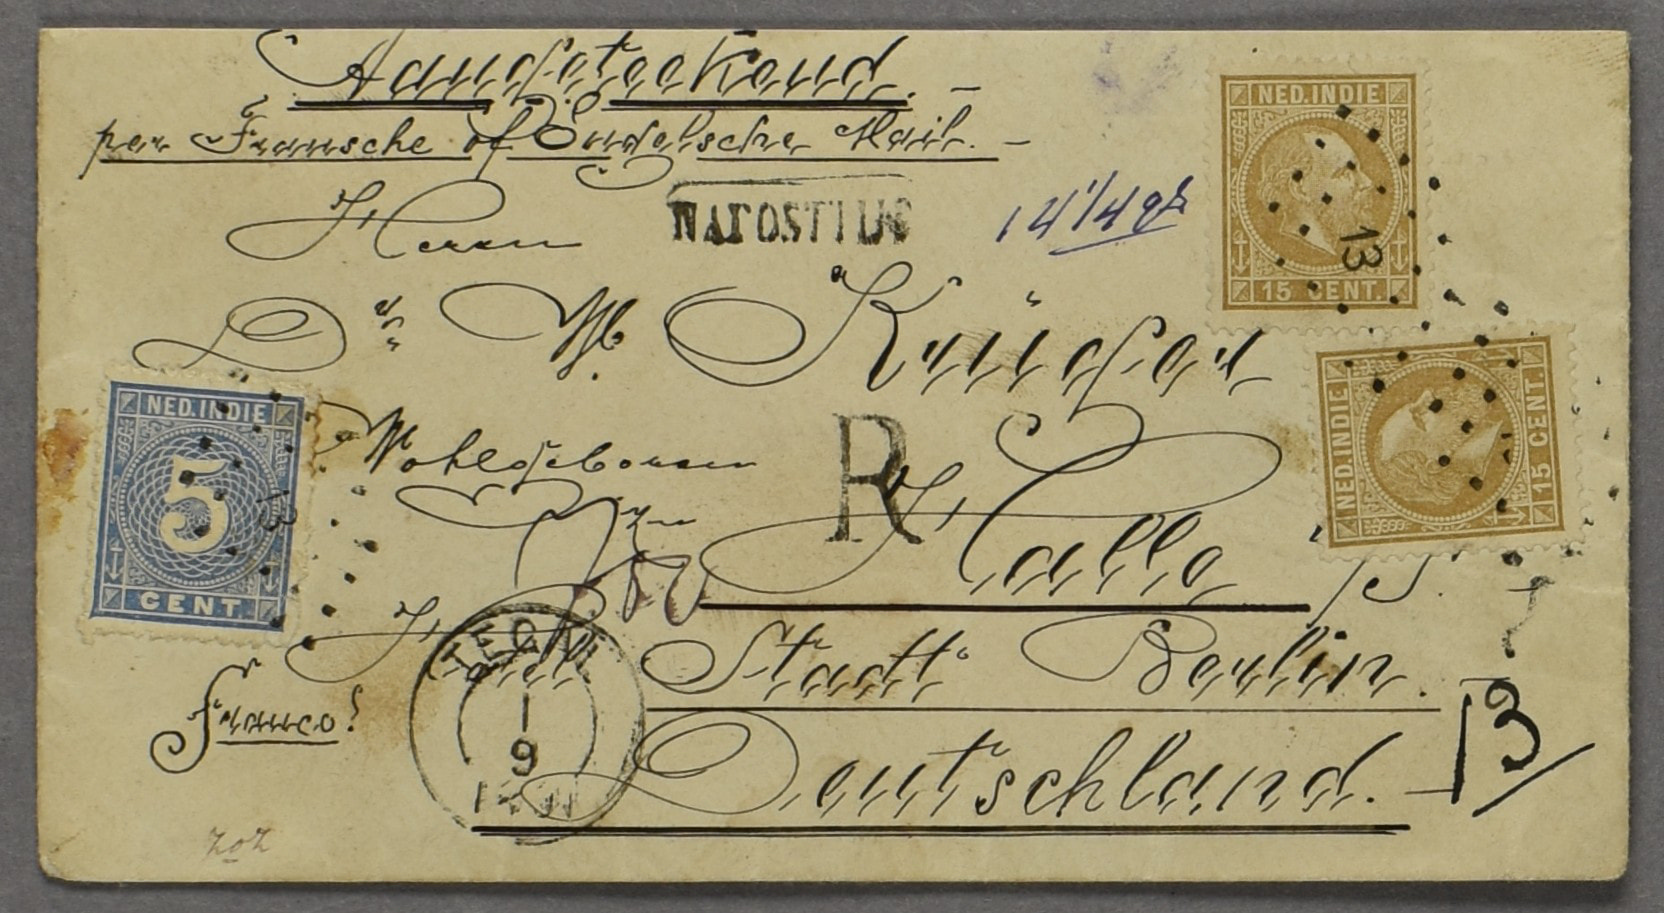 Aangeteekend.
per Fransche of Engelsche Mail.
NAPOSTTIJD
14 1/4 gr
Herrn
Dr W. Krüger
Wohlgeboren
R
Zu
Halle a/S.
Hotel Stadt Berlin.
Franco!
Deutschland.
13
TEGAL
1
9
NED. INDIE
15 CENT.
13
NED. INDIE
15 CENT.
NED. INDIE
5
CENT
13